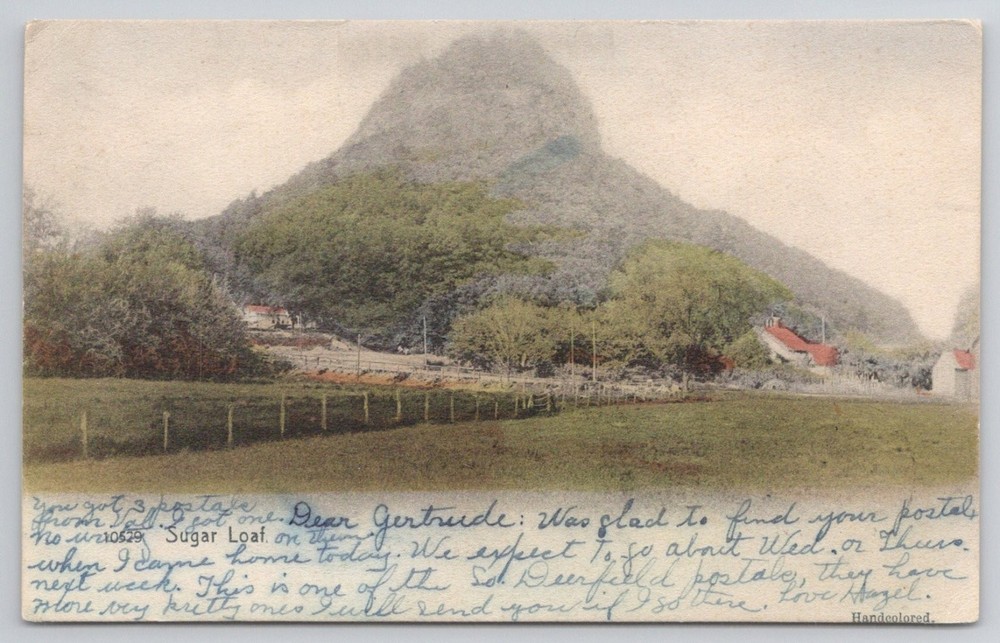 you got 3 postals
from Val. I got one. Dear Gertrude: Was glad to find your postal
no on them.
10529 Sugar Loaf.
when I came home today. We expect to go about Wed. or Thurs.
next week. This is one of the So. Deerfield postals, they have
more very pretty ones I will send you if I go there. Love Hazel.
Handcolored.